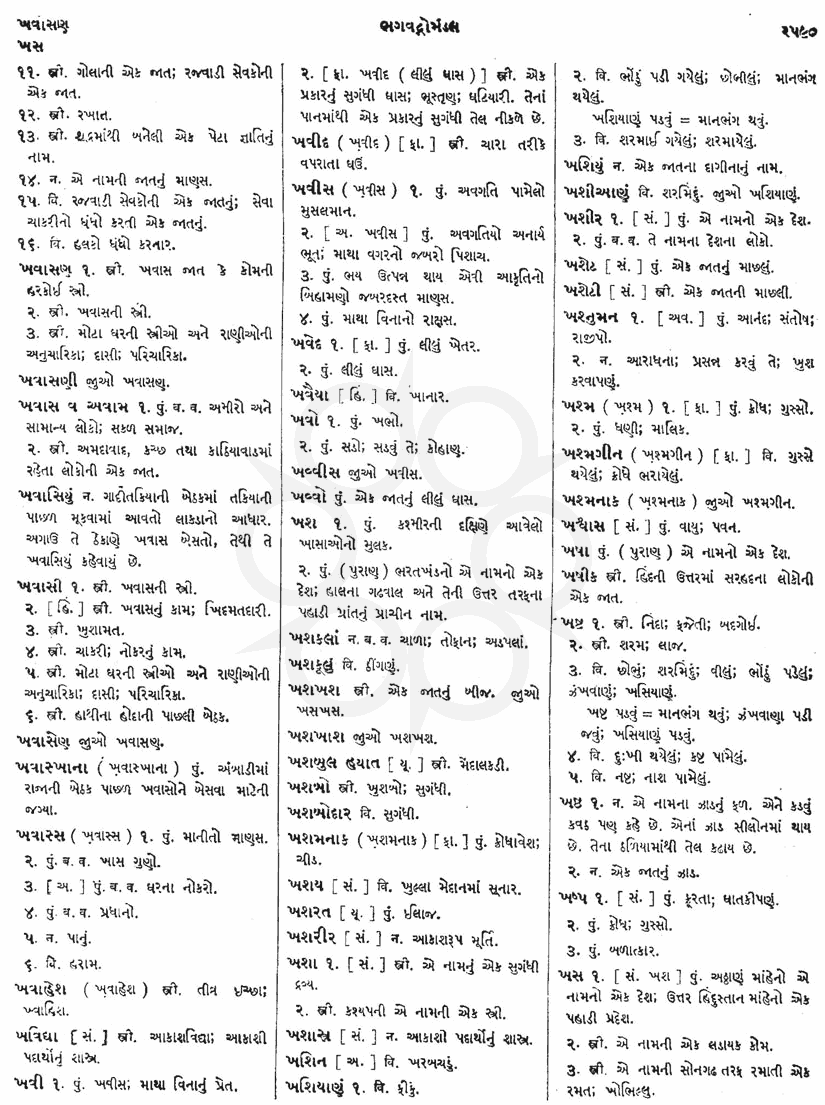 ખવાસણ
ભગવદ્ગોમંડલ
૨૫૯૦
ખસ
૧૧. સ્ત્રી. ગોલાની એક જાત; રજવાડી સેવકોની
એક જાત.
૧૨. સ્ત્રી. રખાત.
૧૩. સ્ત્રી. શૂદ્રમાંથી બનેલી એક પેટા જ્ઞાતિનું
નામ.
૧૪. ન. એ નામની જાતનું માણસ.
૧૫. વિ. રજવાડી સેવકોની એક જાતનું; સેવા
ચાકરીનો ધંધો કરતી એક જાતનું.
૧૬. વિ. હલકો ધંધો કરનાર.
ખવાસણ ૧. સ્ત્રી. ખવાસ જાત કે કોમની
હરકોઈ સ્ત્રી.
૨. સ્ત્રી. ખવાસની સ્ત્રી.
૩. સ્ત્રી. મોટા ઘરની સ્ત્રીઓ અને રાણીઓની
અનુચારિકા; દાસી; પરિચારિકા.
ખવાસણી જુઓ ખવાસણ.
ખવાસ વ અવામ ૧. પું. બ. વ. અમીરો અને
સામાન્ય લોકો; સકળ સમાજ.
૨. સ્ત્રી. અમદાવાદ, કચ્છ તથા કાઠિયાવાડમાં
રહેતા લોકોની એક જાત.
ખવાસિયું ન. ગાદીતકિયાની બેઠકમાં તકિયાની
પાછળ મૂકવામાં આવતો લાકડાનો આધાર.
અગાઉ તે ઠેકાણે ખવાસ બેસતો, તેથી તે
ખવાસિયું કહેવાયું છે.
ખવાસી ૧. સ્ત્રી. ખવાસની સ્ત્રી.
૨. [ હિં. ] સ્ત્રી. ખવાસનું કામ; ખિદમતદારી.
૩. સ્ત્રી. ખુશામત.
૪. સ્ત્રી. ચાકરી; નોકરનું કામ.
૫. સ્ત્રી. મોટા ઘરની સ્ત્રીઓ અને રાણીઓની
અનુચારિકા; દાસી; પરિચારિકા.
૬. સ્ત્રી. હાથીના હોદાની પાછલી બેઠક.
ખવાસેણ જુઓ ખવાસણ.
ખવાસ્ખાના ( ખ઼વાસ્ખાના ) પું. અંબાડીમાં
રાજાની બેઠક પાછળ ખવાસોને બેસવા માટેની
જગ્યા.
ખવાસ્સ ( ખ઼વાસ્સ ) ૧. પું. માનીતો માણસ.
૨. પું. બ. વ. ખાસ ગુણો.
૩. [ અ. ] પું. બ. વ. ઘરના નોકરો.
૪. પું. બ. વ. પ્રધાનો.
૫. ન. પાનું.
૬. વિ. હરામ.
ખવાહેશ ( ખ઼વાહેશ ) સ્ત્રી. તીવ્ર ઇચ્છા;
ખ્વાહિશ.
ખવિદ્યા [ સં. ] સ્ત્રી. આકાશવિદ્યા; આકાશી
પદાર્થોનું શાસ્ત્ર.
ખવી ૧. પું. ખવીસ; માથા વિનાનું પ્રેત.
૨. [ ફા. ખવીદ ( લીલું ઘાસ ) ] સ્ત્રી. એક
પ્રકારનું સુગંધી ઘાસ; ભૂસ્તૃણ; ઘટિયારી. તેનાં
પાનમાંથી એક પ્રકારનું સુગંધી તેલ નીકળે છે.
ખવીદ ( ખ઼વીદ ) [ ફા. ] સ્ત્રી. ચારા તરીકે
વપરાતા ઘઉં.
ખવીસ ( ખ઼વીસ ) ૧. પું. અવગતિ પામેલો
મુસલમાન.
૨. [ અ. ખબીસ ] પું. અવગતિયો અનાર્ય
ભૂત; માથા વગરનો જબરો પિશાચ.
૩. પું. ભય ઉત્પન્ન થાય એવી આકૃતિનો
બિહામણો જબરદસ્ત માણસ.
૪. પું. માથા વિનાનો રાક્ષસ.
ખવેદ ૧. [ ફા. ] પું. લીલું ખેતર.
૨. પું. લીલું ઘાસ.
ખવૈયા [ હિં. ] વિ. ખાનાર.
ખવો ૧. પું. ખભો.
૨. પું. સડો; સડવું તે; કોહાણ.
ખવ્વીસ જુઓ ખવીસ.
ખવ્વો પું. એક જાતનું લીલું ઘાસ.
ખશ ૧. પું. કશ્મીરની દક્ષિણે આવેલો
ખાસાઓનો મુલક.
૨. પું. (પુરાણ) ભરતખંડનો એ નામનો એક
દેશ; હાલના ગઢવાલ અને તેની ઉત્તર તરફના
પહાડી પ્રાંતનું પ્રાચીન નામ.
ખશકલાં ન. બ. વ. ચાળા; તોફાન; અડપલાં.
ખશકૂલું વિ. ઠીંગણું.
ખશખશ સ્ત્રી. એક જાતનું બીજ. જુઓ
ખસખસ.
ખશખાશ જુઓ ખશખશ.
ખશબુલ હયાત [ યૂ. ] સ્ત્રી. મેદાલકડી.
ખશબો સ્ત્રી. ખુશબો; સુગંધી.
ખશબોદાર વિ. સુગંધી.
ખશમનાક ( ખ઼શમનાક ) [ ફા. ] પું. ક્રોધાવેશ;
ચીડ.
ખશય [ સં. ] વિ. ખુલ્લા મેદાનમાં સૂનાર.
ખશરત [ યૂ. ] પું. ઈલાજ.
ખશરીર [ સં. ] ન. આકાશરૂપ મૂર્તિ.
ખશા ૧. [ સં. ] સ્ત્રી. એ નામનું એક સુગંધી
દ્રવ્ય.
૨. સ્ત્રી. કશ્યપની એ નામની એક સ્ત્રી.
ખશાસ્ત્ર [ સં. ] ન. આકાશી પદાર્થોનું શાસ્ત્ર.
ખશિન [ અ. ] વિ. ખરબચડું.
ખશિયાણું ૧. વિ. ફીકું.
૨. વિ. ભોંઠું પડી ગયેલું; છોબીલું; માનભંગ
થયેલું.
ખશિયાણું પડવું = માનભંગ થવું.
૩. વિ. શરમાઈ ગયેલું; શરમાયેલું.
ખશિયું ન. એક જાતના દાગીનાનું નામ.
ખશીઆણું વિ. શરમિંદું. જુઓ ખશિયાણું.
ખશીર ૧. [ સં. ] પું. એ નામનો એક દેશ.
૨. પું. બ. વ. તે નામના દેશના લોકો.
ખશેટ [ સં. ] પું. એક જાતનું માછલું.
ખશેટી [ સં. ] સ્ત્રી. એક જાતની માછલી.
ખશ્નુમન ૧. [ અવ. ] પું. આનંદ; સંતોષ;
રાજીપો.
૨. ન. આરાધના; પ્રસન્ન કરવું તે; ખુશ
કરવાપણું.
ખશ્મ ( ખ઼શ્મ ) ૧. [ ફા. ] પું. ક્રોધ; ગુસ્સો.
૨. પું. ધણી; માલિક.
ખશ્મગીન ( ખ઼શ્મગીન ) [ ફા. ] વિ. ગુસ્સે
થયેલું; ક્રોધે ભરાયેલું.
ખશ્મનાક ( ખ઼શ્મનાક ) જુઓ ખશ્મગીન.
ખશ્વાસ [ સં. ] પું. વાયુ; પવન.
ખષા પું. (પુરાણ) એ નામનો એક દેશ.
ખષીક સ્ત્રી. હિંદની ઉત્તરમાં સરહદના લોકોની
એક જાત.
ખષ્ટ ૧. સ્ત્રી. નિંદા; ફજેતી; બદગોઈ.
૨. સ્ત્રી. શરમ; લાજ.
૩. વિ. છોભું; શરમિંદું; વીલું; ભોંઠું પડેલું;
ઝંખવાણું; ખસિયાણું.
ખષ્ટ પડવું = માનભંગ થવું; ઝંખવાણા પડી
જવું; ખસિયાણું પડવું.
૪. વિ. દુઃખી થયેલું; કષ્ટ પામેલું.
૫. વિ. નષ્ટ; નાશ પામેલું.
ખષ્ટ ૧. ન. એ નામના ઝાડનું ફળ. એને કડવું
કવઠ પણ કહે છે. એનાં ઝાડ સીલોનમાં થાય
છે. તેના ઠળિયામાંથી તેલ કઢાય છે.
૨. ન. એક જાતનું ઝાડ.
ખષ્પ ૧. [ સં. ] પું. ક્રૂરતા; ઘાતકીપણું.
૨. પું. ક્રોધ; ગુસ્સો.
૩. પું. બળાત્કાર.
ખસ ૧. [ સં. ખશ ] પું. અઠ્ઠાણું માંહેનો એ
નામનો એક દેશ; ઉત્તર હિંદુસ્તાન માંહેનો એક
પહાડી પ્રદેશ.
૨. સ્ત્રી. એ નામની એક લડાયક કોમ.
૩. સ્ત્રી. એ નામની સોનગઢ તરફ રમાતી એક
રમત; ખોભિલ્લુ.